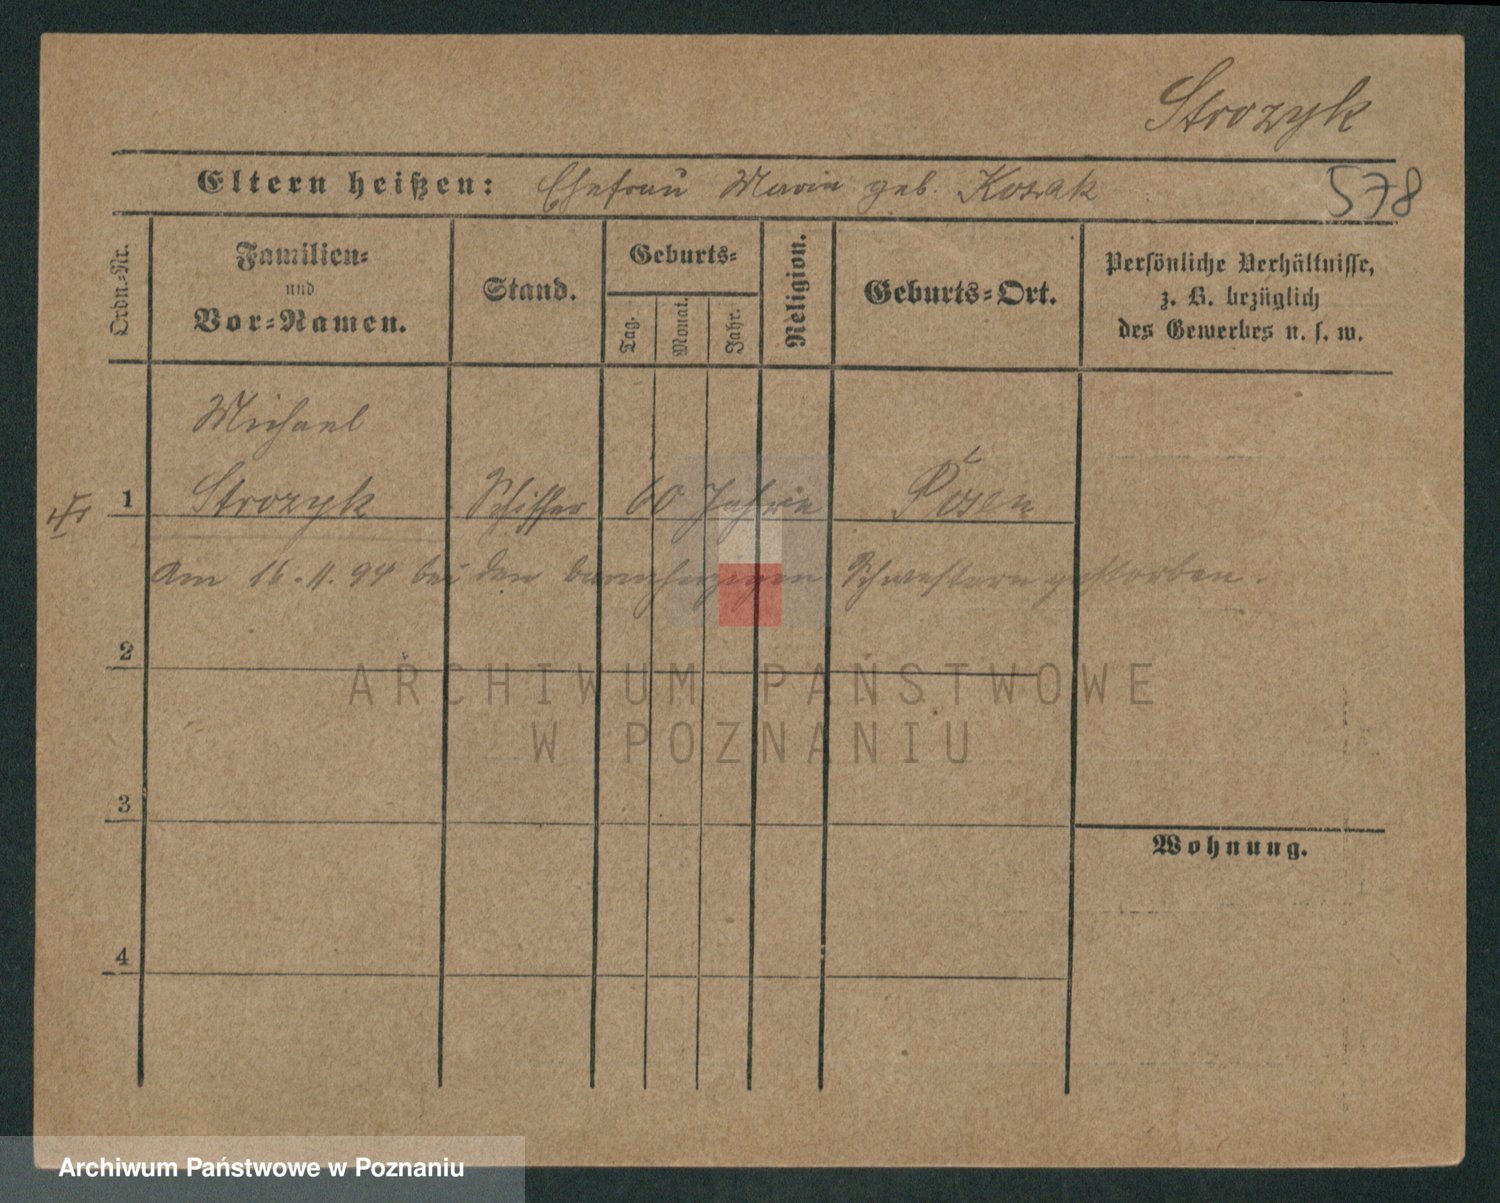 Strozyk
Eltern heißen: Ehefrau Maria geb. Kozak
578
Ordn.-Nr.
Familien-
und
Vor-Namen.
Stand.
Geburts-
Tag.
Monat.
Jahr.
Religion.
Geburts-Ort.
Persönliche Verhältnisse,
z. B. bezüglich
des Gewerbes u. s. w.
Michael
1 Strozyk Schiffer 60 Jahre Posen
Am 16.11.94 bei den barmherzigen Schwestern gestorben.
2
ARCHIWUM PAŃSTWOWE
W POZNANIU
3
Wohnung.
4
Archiwum Państwowe w Poznaniu